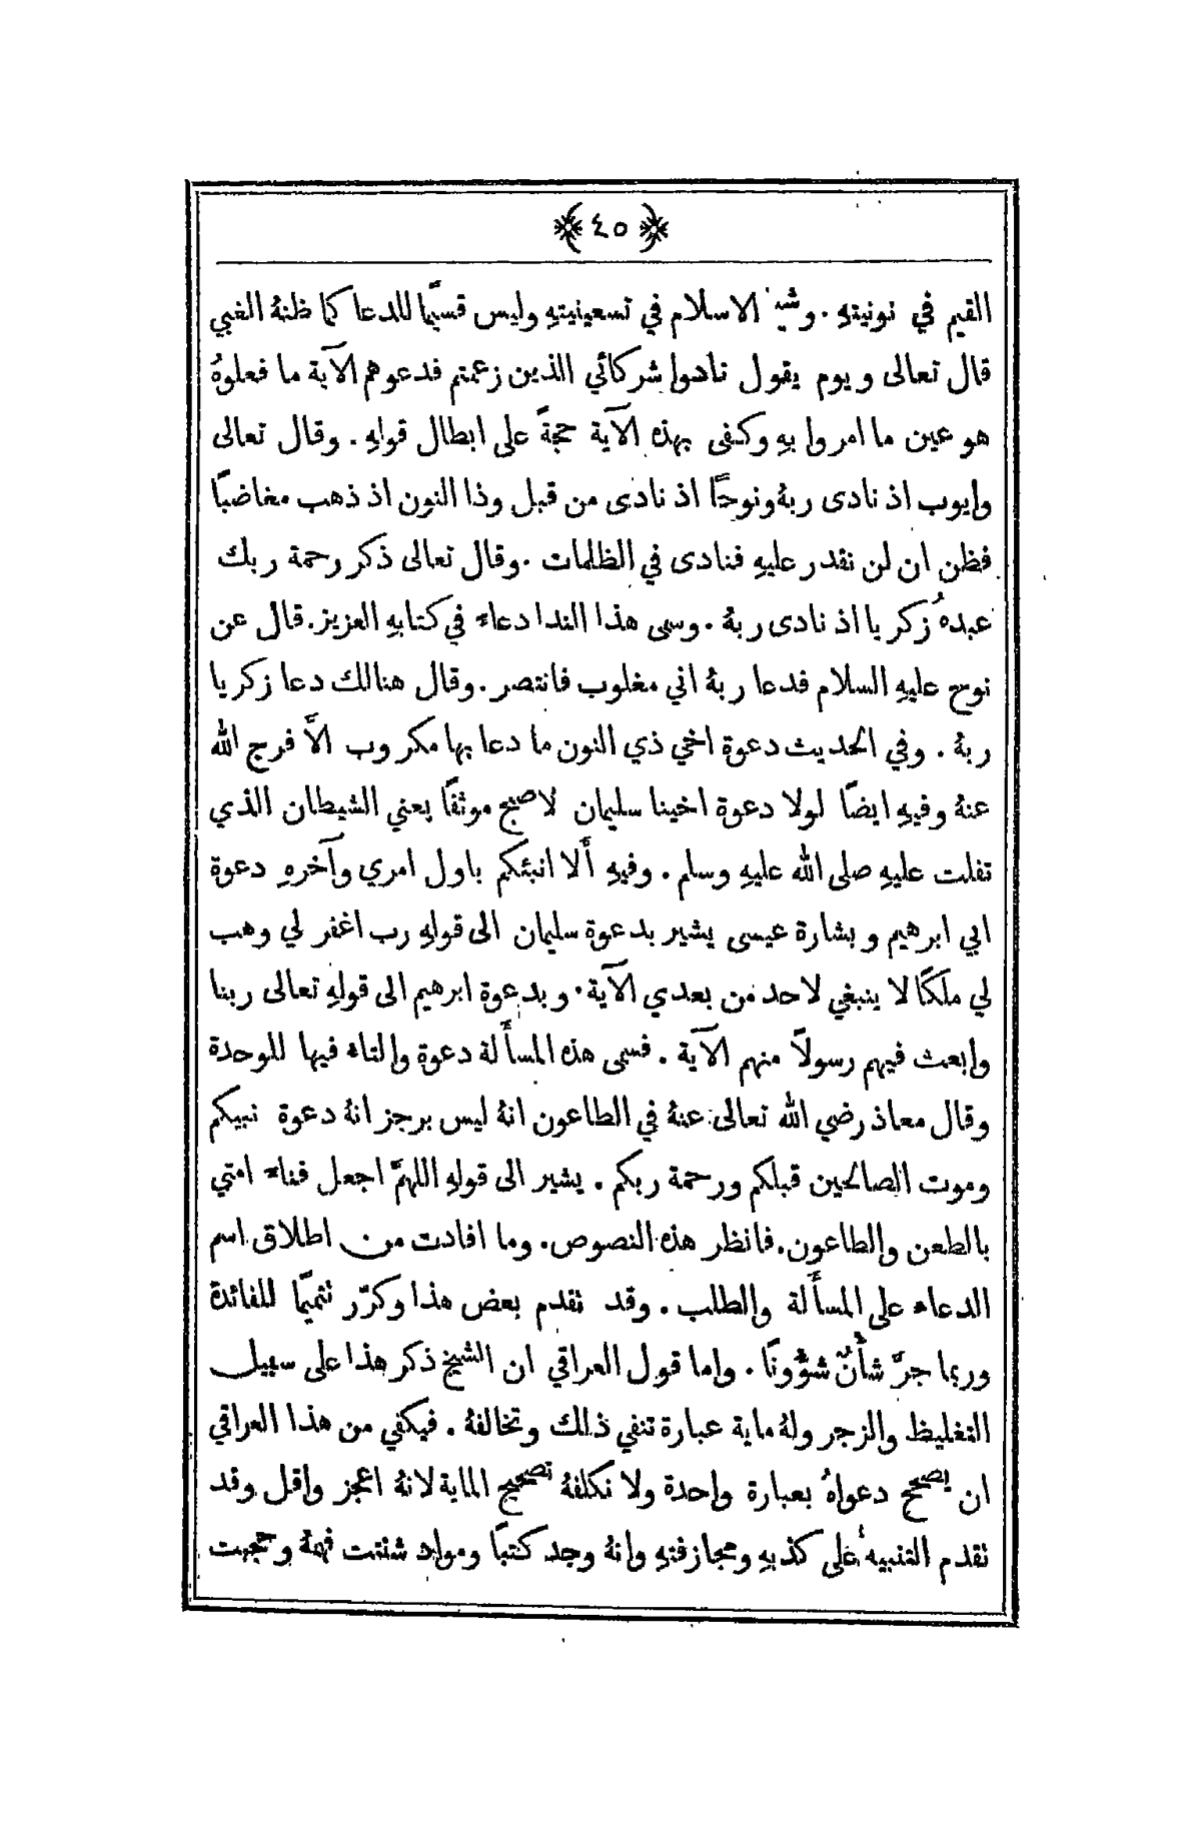 ٤٥
القيم في نونيتهِ . وشيخ الاسلام في تسعينيتهِ وليس قسيمًا للدعا كما ظنهُ الغبي
قال تعالى ويوم يقول نادوا شركائي الذين زعمتم فدعوهم الآية ما فعلوهُ
هو عين ما امروا بهِ وكفى بهذه الآية حجةً على ابطال قولهِ . وقال تعالى
وايوب اذ نادى ربهُ ونوحًا اذ نادى من قبل وذا النون اذ ذهب مغاضبًا
فظن ان لن نقدر عليهِ فنادى في الظلمات . وقال تعالى ذكر رحمة ربك
عبدهُ زكريا اذ نادى ربهُ . وسمى هذا الندا دعاء في كتابهِ العزيز. قال عن
نوح عليهِ السلام فدعا ربهُ اني مغلوب فانتصر . وقال هنالك دعا زكريا
ربهُ . وفي الحديث دعوة اخي ذي النون ما دعا بها مكروب الاَّ فرج الله
عنهُ وفيهِ ايضًا لولا دعوة اخينا سليمان لاصبح موثقًا يعني الشيطان الذي
تفلت عليهِ صلى الله عليهِ وسلم . وفيهِ أَلا انبئكم باول امري وآخرهِ دعوة
ابي ابرهيم وبشارة عيسى يشير بدعوة سليمان الى قولهِ رب اغفر لي وهب
لي ملكًا لا ينبغي لاحد من بعدي الآية . وبدعوة ابرهيم الى قولهِ تعالى ربنا
وابعث فيهم رسولاً منهم الآية . فسمى هذه المسأَلة دعوة والتاء فيها للوحدة
وقال معاذ رضي الله تعالى عنهُ في الطاعون انهُ ليس برجز انهُ دعوة نبيكم
وموت الصالحين قبلكم ورحمة ربكم . يشير الى قولهِ اللهمَّ اجعل فناء امتي
بالطعن والطاعون. فانظر هذه النصوص. وما افادت من اطلاق اسم
الدعاء على المسأَلة والطلب . وقد تقدم بعض هذا وكرّر تتميمًا للفائدة
وربما جرَّ شأنٌ شؤُونًا . واما قول العراقي ان الشيخ ذكر هذا على سبيل
التغليظ والزجر ولهُ ماية عبارة تنفي ذلك وتخالفهُ . فيكفي من هذا العراقي
ان يصحح دعواهُ بعبارة واحدة ولا نكلفهُ تصحيح الماية لانهُ اعجز واقل وقد
تقدم التنبيه على كذبهِ ومجازفتهِ وانهُ وجد كتبًا ومواد شتت فهمهُ وحجبت